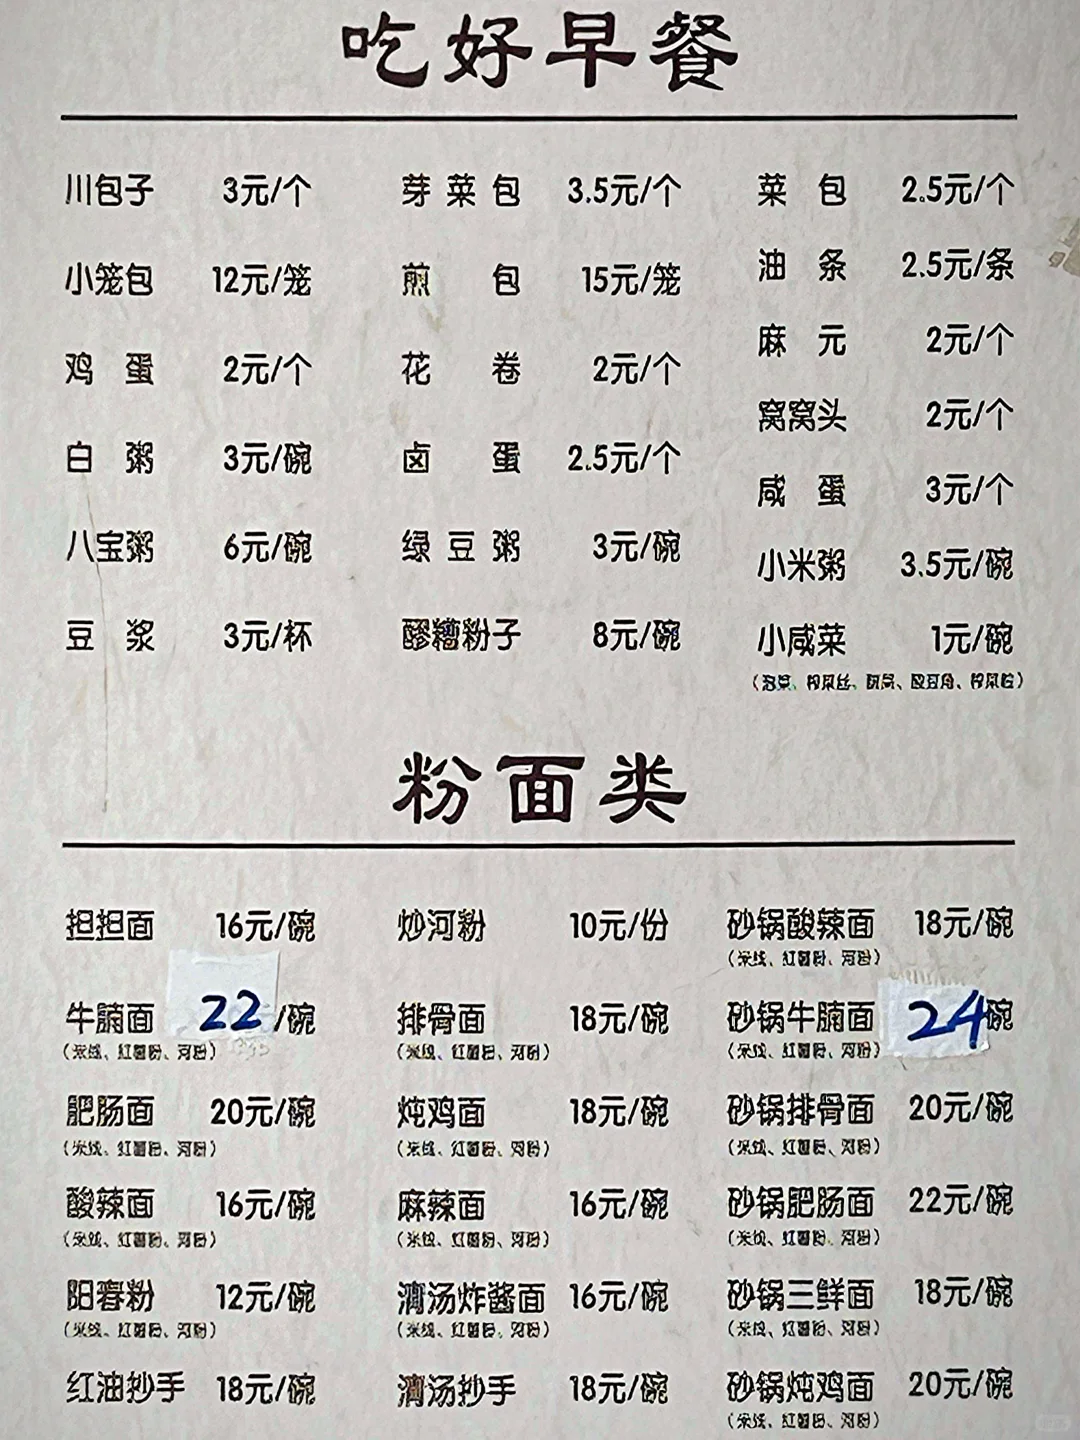 吃好早餐
川包子 3元/个 芽菜包 3.5元/个 菜包 2.5元/个
小笼包 12元/笼 煎包 15元/笼 油条 2.5元/条
鸡蛋 2元/个 花卷 2元/个 麻元 2元/个
窝窝头 2元/个
白粥 3元/碗 卤蛋 2.5元/个 咸蛋 3元/个
八宝粥 6元/碗 绿豆粥 3元/碗 小米粥 3.5元/碗
豆浆 3元/杯 醪糟粉子 8元/碗 小咸菜 1元/碗
粉面类
担担面 16元/碗 炒河粉 10元/份 砂锅酸辣面 18元/碗
(米线、红薯粉、河粉)
牛腩面 22/碗 排骨面 18元/碗 砂锅牛腩面 24碗
(米线、红薯粉、河粉) (米线、红薯粉、河粉) (米线、红薯粉、河粉)
肥肠面 20元/碗 炖鸡面 18元/碗 砂锅排骨面 20元/碗
(米线、红薯粉、河粉) (米线、红薯粉、河粉) (米线、红薯粉、河粉)
酸辣面 16元/碗 麻辣面 16元/碗 砂锅肥肠面 22元/碗
(米线、红薯粉、河粉) (米线、红薯粉、河粉) (米线、红薯粉、河粉)
阳春粉 12元/碗 清汤炸酱面 16元/碗 砂锅三鲜面 18元/碗
(米线、红薯粉、河粉) (米线、红薯粉、河粉) (米线、红薯粉、河粉)
红油抄手 18元/碗 清汤抄手 18元/碗 砂锅炖鸡面 20元/碗
(米线、红薯粉、河粉)